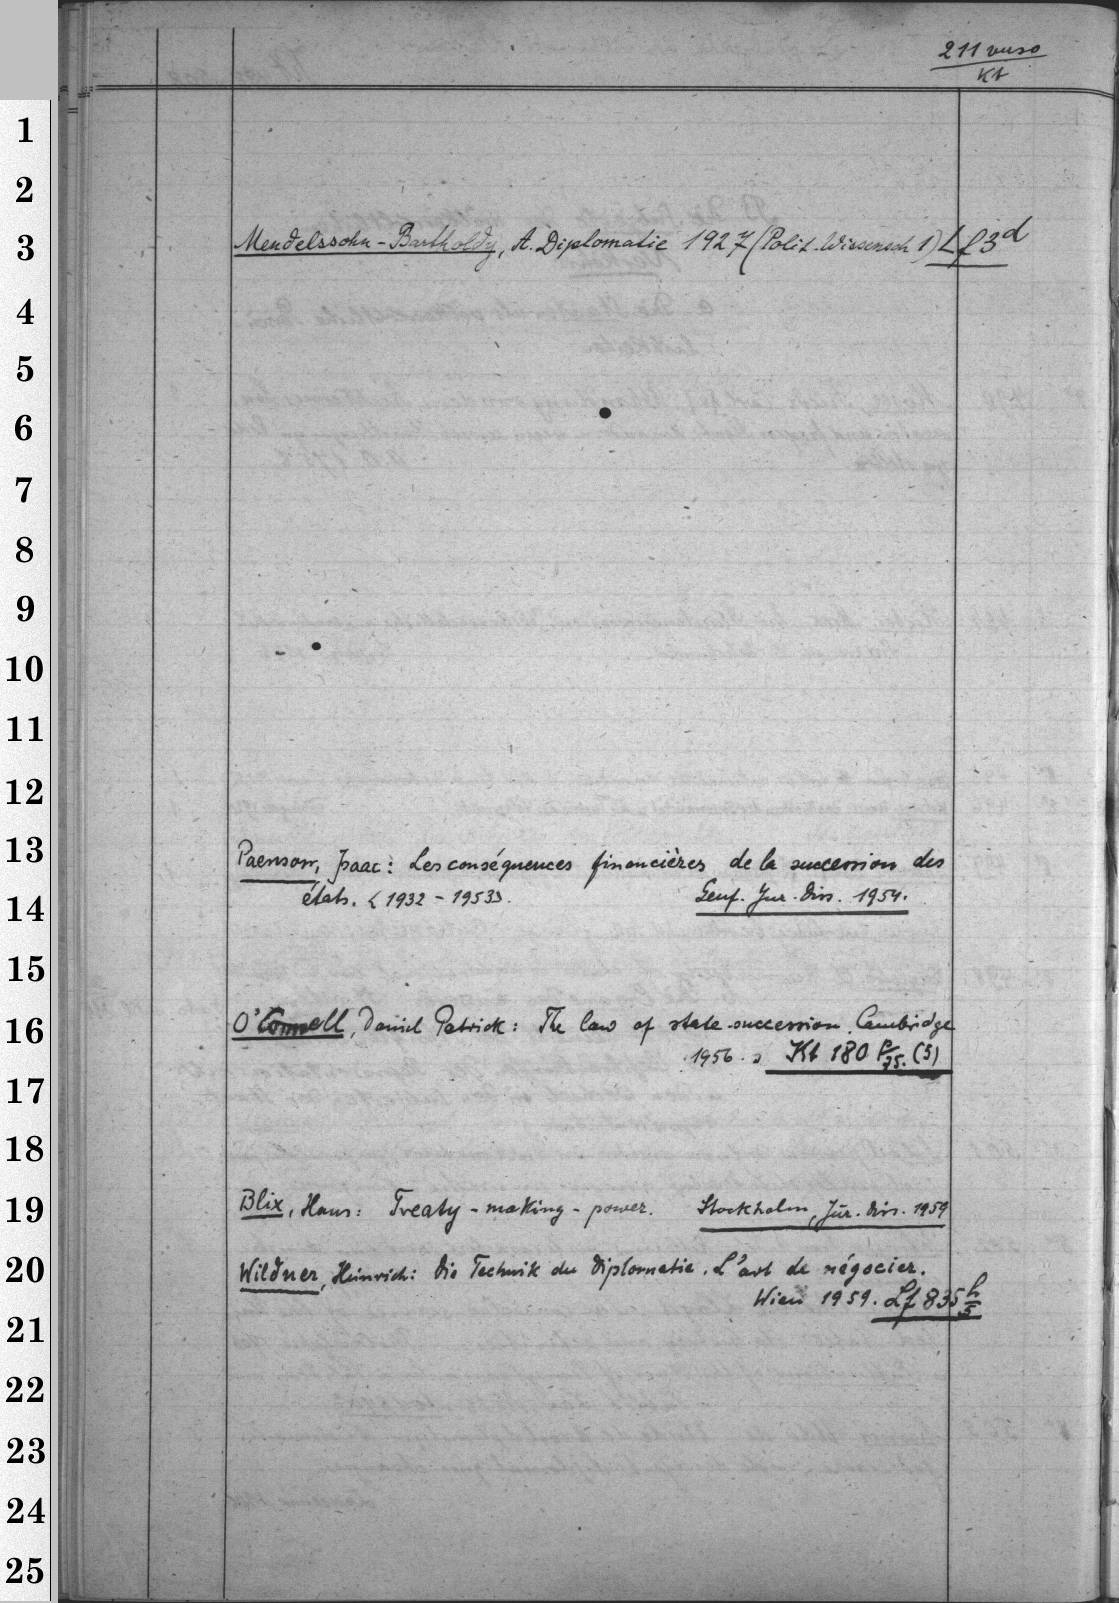 211 verso
Kt
1
2
3 Mendelssohn-Bartholdy, A. Diplomatie 1927 (Polit. Wissensch 1) Lf 3d
4
5
6
7
8
9
10
11
12
13 Paenson, Isaac: Les conséquences financières de la succession des
14 états. < 1932 - 1953>. Genf. Jur. Diss. 1954.
15
16 O'Connell, Daniel Patrick: The law of state-succession. Cambridge
1956. Kt 180 P/75. (5)
17
18
19 Blix, Hans: Treaty-making-power. Stockholm, Jur. Diss. 1959
20 Wildner, Heinrich: Die Technik der Diplomatie. L'art de négocier.
Wien 1959. Lf 835 h/5
21
22
23
24
25